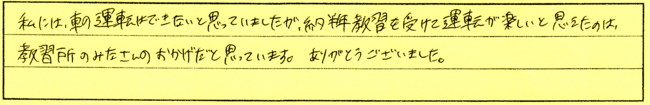 私には、車の運転はできないと思っていましたが、納得教習を受けて運転が楽しいと思えたのは、
教習所のみなさんのおかげだと思っています。ありがとうございました。